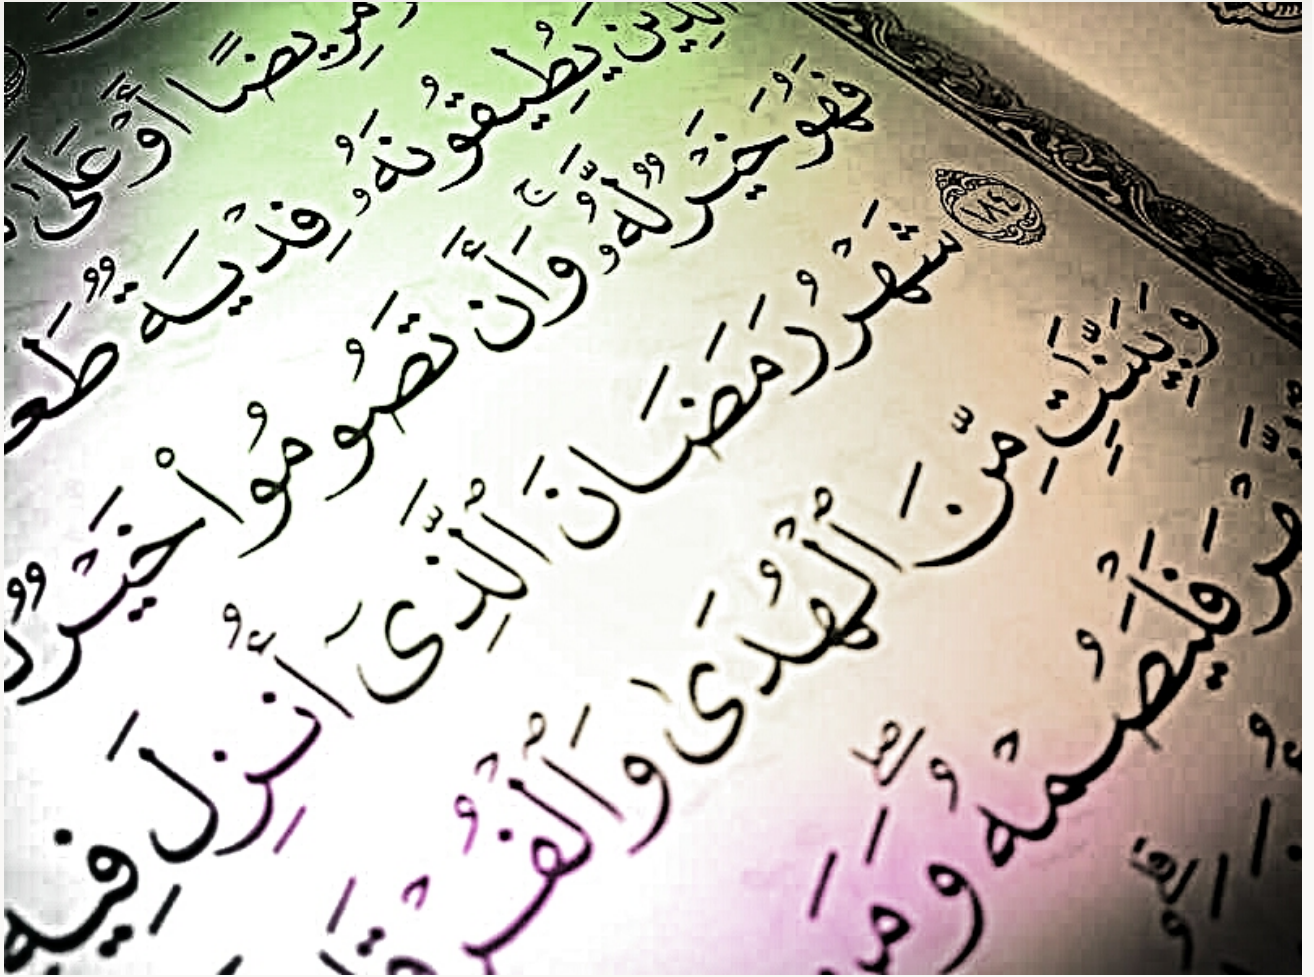 مَّرِيضًا أَوْ عَلَىٰ
ٱلَّذِينَ يُطِيقُونَهُۥ فِدْيَةٌ
فَهُوَ خَيْرٌ لَّهُۥ وَأَن تَصُومُوا۟ خَيْرٌ
١٨٤ شَهْرُ رَمَضَانَ ٱلَّذِىٓ أُنزِلَ فِيهِ
وَبَيِّنَٰتٍ مِّنَ ٱلْهُدَىٰ وَٱلْفُرْقَا
فَلْيَصُمْهُ ۖ وَمَن